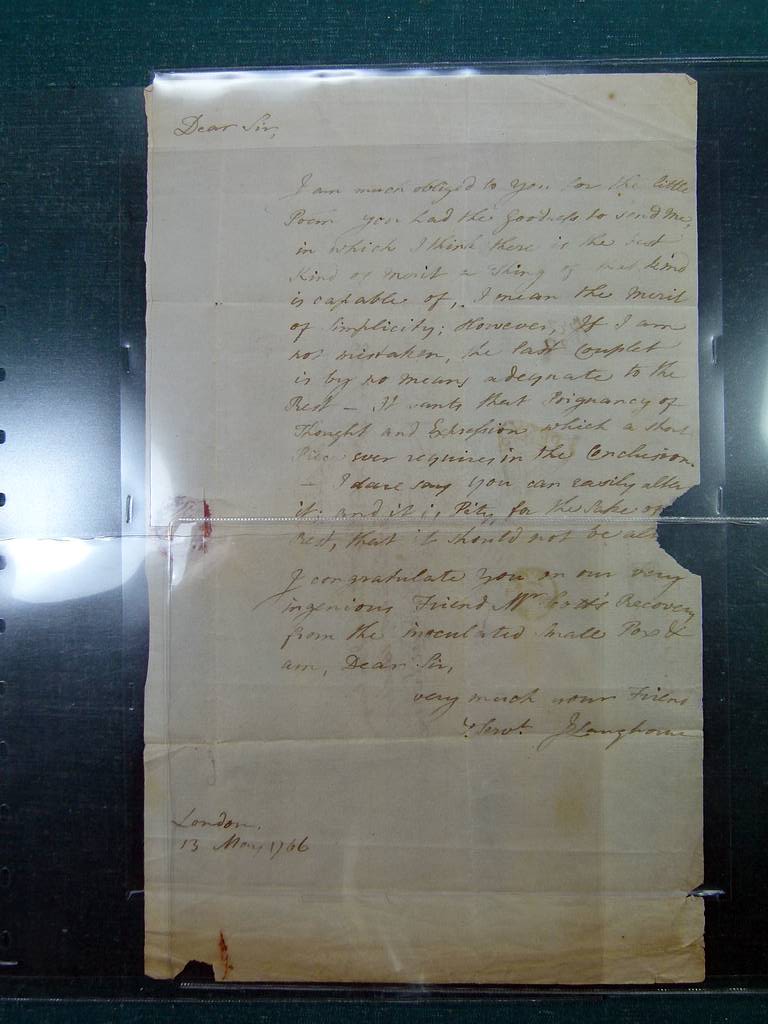 Dear Sir,
I am much obliged to you for the little
Poem you had the Goodness to send me,
in which I think there is the best
Kind of merit a thing of that kind
is capable of, I mean the Merit
of Simplicity; However, If I am
not mistaken, the last Couplet
is by no means adequate to the
Rest — It wants that Poignancy of
Thought and Expression which a short
Piece ever requires in the Conclusion.
— I dare say you can easily alter
it; and it is Pity, for the Sake of
Rest, that it should not be
I congratulate you on our very
ingenious Friend Mr Scott's Recovery
from the inoculated Small Pox &
am, Dear Sir,
very much your Friend
& Servt. J Langhorne
London.
13 May 1766